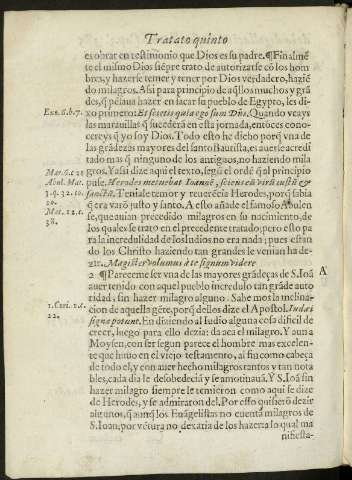 Tratato quinto
es obrar en testimonio que Dios es su padre. ¶Finalmẽ
te el mismo Dios siẽpre trato de autorizarse cõ los hom
bres, y hazerse temer y tener por Dios verdadero, haziẽ
do milagros. Asi para principio de aq̃llos muchos y grã
des, q̃ pẽsaua hazer en sacar su pueblo de Egypto, les di-
Exo. 6. b. 7.
xo primero: Et scietis quia ego sum Dñs. Quando veays
las marauillas q̃ sucederã en esta jornada, entõces cono-
cereys q̃ yo soy Dios. Todo esto he dicho porq̃ vna de
las grãdezas mayores del santo Bautista, es auerse acredi
tado mas q̃ ninguno de los antiguos, no haziendo mila
Mar. 6. c. 21
gros. Y asi dize aqui el texto, segũ el ordẽ q̃ al principio
Abul. Mat.
puse. Herodes metuebat Ioannẽ, sciens eũ virũ iustũ &
14. q. 32. to.
sanctũ. Teniale temor y reuerẽcia Herodes, porq̃ sabia
20.
q̃ era varõ justo y santo. A esto añade el famoso Abulen
Mat. 12. c.
38.
se, que auian precedido milagros en su nacimiento, de
los quales se trato en el precedente tratado; pero esto pa
ra la incredulidad de los Iudios no era nada; pues estan
do los Christo haziendo tan grandes le venian ha de-
zir. Magister volumus à te signum videre
2 ¶Pareceme ser vna de las mayores grãdeças de S. Ioã
A
auer tenido con aquel pueblo incredulo tan grãde auto
ridad, sin hazer milagro alguno. Sabemos la inclina-
1. Cori. 1. c.
22.
cion de aquella gẽte, porq̃ dellos dize el Apostol. Iudæi
signa petunt. En diziendo al Iudio alguna cosa dificil de
creer, luego para ello dezia: da aca el milagro. Y aun a
Moysen, con ser segun parece el hombre mas excelen-
te que huuo en el viejo testamento, al fin como cabeça
de todo el, y con auer hecho milagros tantos y tan nota
bles, cada dia le desobedeciã y se amotinauã. Y S. Ioã sin
hazer milagro siempre le temieron como aqui se dize
de Herodes, y se admiraron del. Por esso quisierõ dezir
algunos, q̃ aunq̃ los Euãgelistas no cuentã milagros de
S. Ioan; por vẽtura no dexaria de los hazer: a lo qual ma
nifiesta-